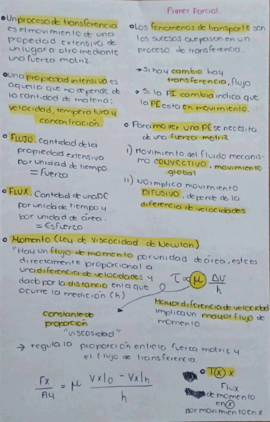 Primer Parcial.
• Un proceso de transferencia
es el movimiento de una
propiedad extensiva de
un lugar a otro mediante
una fuerza motriz.
• Una propiedad intensiva es
aquella que no depende de
la cantidad de materia;
velocidad, temperatura y
concentración.
• FLUJO: Cantidad de la
propiedad extensiva
por unidad de tiempo.
= Fuerza
• FLUX: Cantidad de una PE
por unidad de tiempo y
por unidad de área.
= Esfuerzo
• Los fenómenos de transporte son
los sucesos que pasan en un
proceso de transferencia.
→ Si hay cambio hay
transferencia, flujo
→ Si la PI cambia indica que
la PE está en movimiento.
• Para mover una PE se necesita
de una fuerza motriz
i) Movimiento del fluido mecanis-
mo CONVECTIVO: movimiento
global
ii) NO implica movimiento
DIFUSIVO, depende de la
diferencia de velocidades
• Momento (Ley de Viscocidad de Newton)
"Hay un flujo de momento por unidad de área, este es
directamente proporcional a
una diferencia de velocidades y
dado por la distancia en la que
ocurre la medición (h)
τ ∝ μ ΔV
h
Constante de
proporción
"viscosidad"
Menor diferencia de velocidad
implica un mayor flujo de
momento
→ regula la proporción entre la fuerza motriz y
el flujo de transferencia.
Fx
Ay
= μ Vx|0 - Vx|h
h
Flux
de momento
en
por movimiento en x